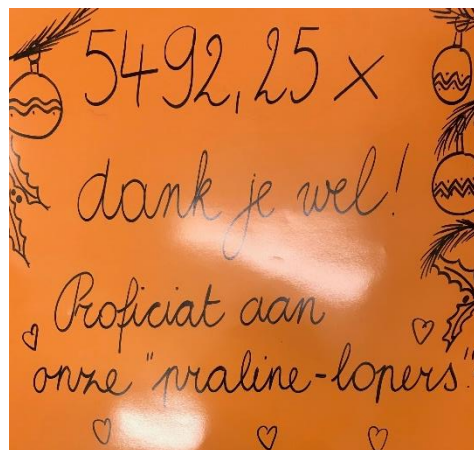 5492,25 x
dank je wel!
Proficiat aan
onze "praline-lopers"